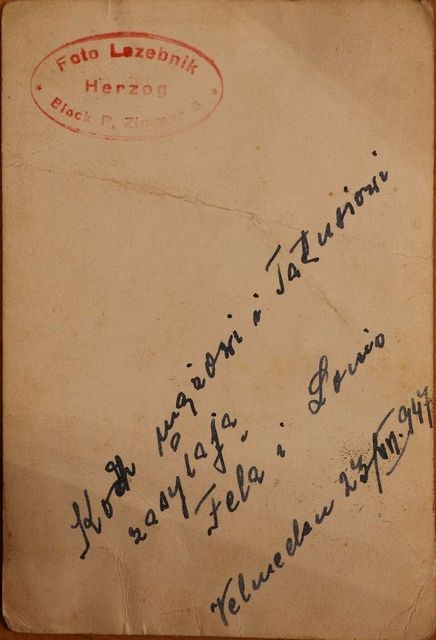 Foto Lazebnik
Herzog
* Block P. Zimmer 9 *
Koch mężowi i Tatusiowi
zasyłają
Fela i Lonio
Velmeden 23/VII.947